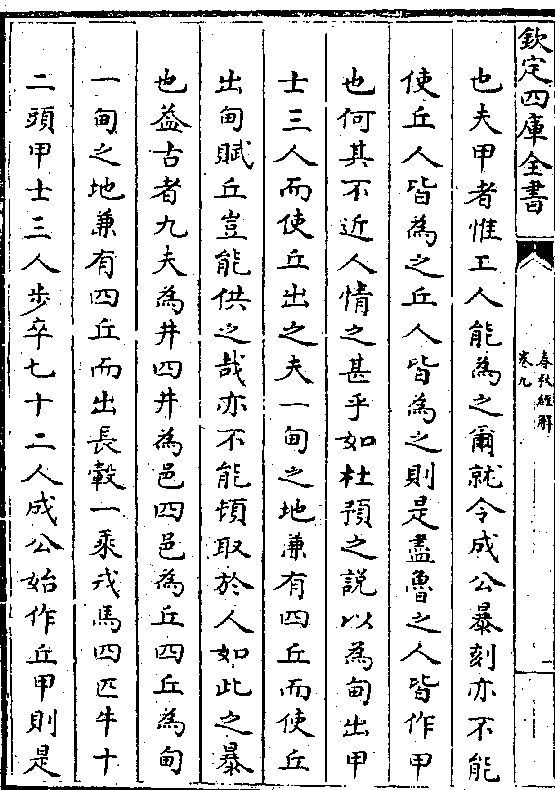 欽定四庫全書
春秋經解
卷九
也夫甲者惟工人能為之爾就令成公暴刻亦不能
使丘人皆為之丘人皆為之則是盡魯之人皆作甲
也何其不近人情之甚乎如杜預之說以為甸出甲
士三人而使丘出之夫一甸之地兼有四丘而使丘
出甸賦丘豈能供之哉亦不能頓取於人如此之暴
也葢古者九夫為井四井為邑四邑為丘四丘為甸
一甸之地兼有四丘而出長轂一乘戎馬四匹牛十
二頭甲士三人步卒七十二人成公始作丘甲則是